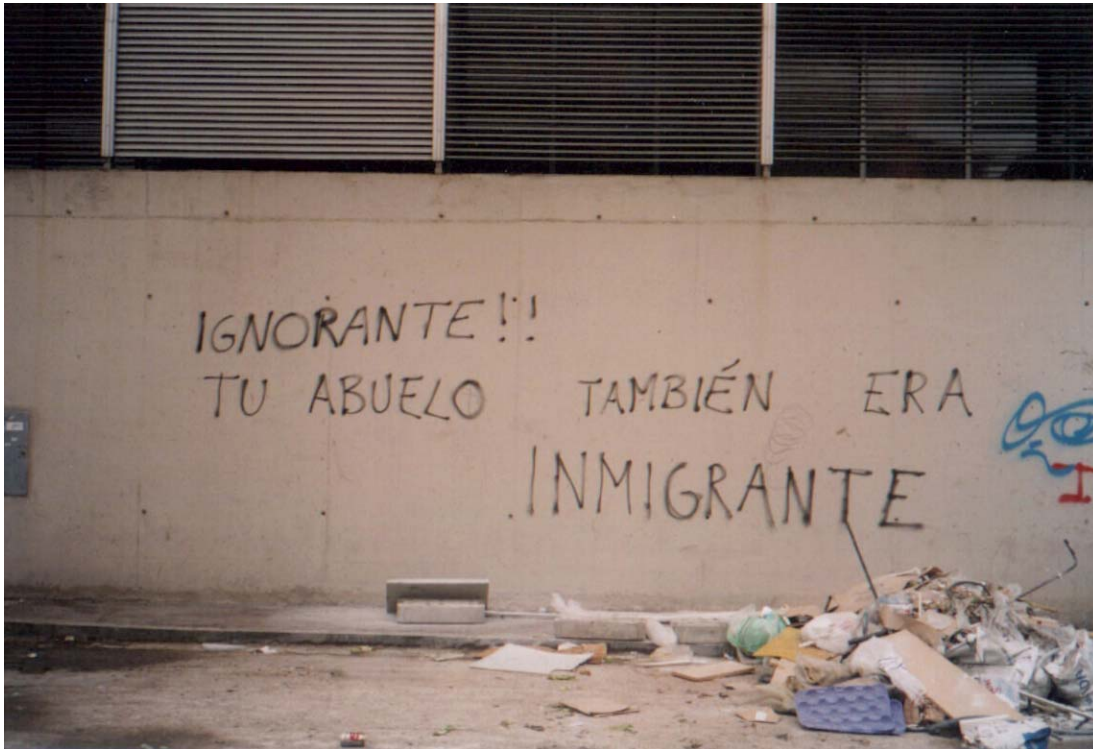 IGNORANTE!!
TU ABUELO TAMBIÉN ERA
INMIGRANTE